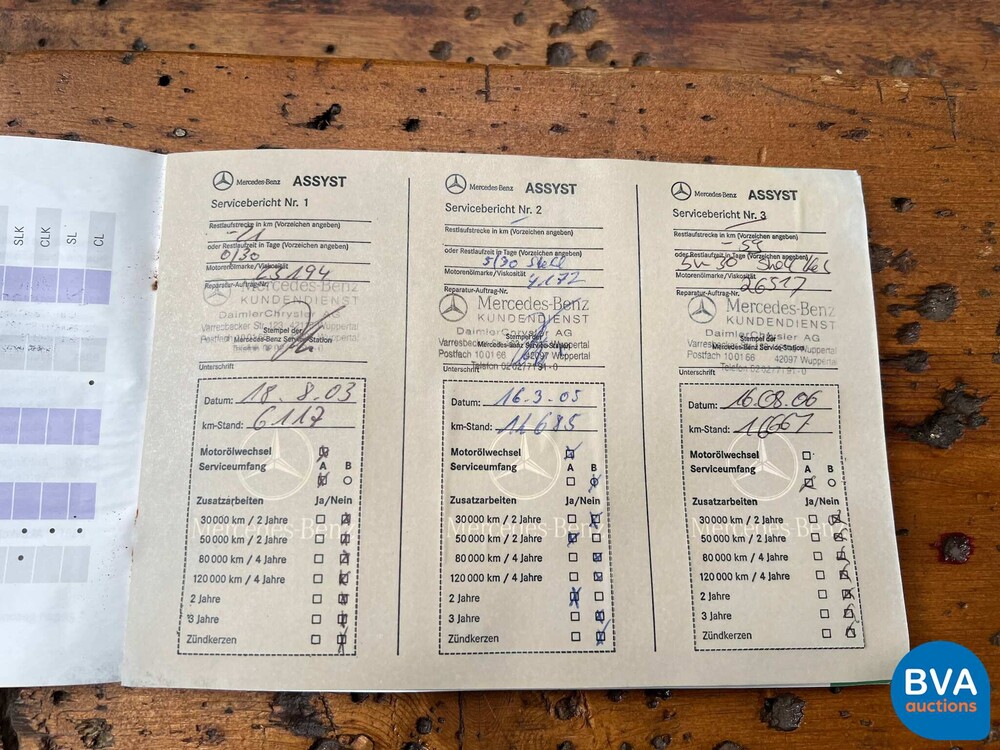 SLK
CLK
SL
CL
Mercedes-Benz ASSYST
Servicebericht Nr. 1
Restlaufstrecke in km (Vorzeichen angeben)
-11
oder Restlaufzeit in Tage (Vorzeichen angeben)
0/30
Motorenölmarke/Viskosität
Reparatur-Auftrag-Nr.
Mercedes-Benz
KUNDENDIENST
DaimlerChrysler AG
Stempel der
Mercedes-Benz Service-Station
Unterschrift
Datum: 18.8.03
km-Stand: 6117
Motorölwechsel
Serviceumfang A B
Zusatzarbeiten Ja/Nein
30000 km / 2 Jahre
50000 km / 2 Jahre
80000 km / 4 Jahre
120000 km / 4 Jahre
2 Jahre
3 Jahre
Zündkerzen
Mercedes-Benz ASSYST
Servicebericht Nr. 2
Restlaufstrecke in km (Vorzeichen angeben)
oder Restlaufzeit in Tage (Vorzeichen angeben)
5/30 Shell
Motorenölmarke/Viskosität
4172
Reparatur-Auftrag-Nr.
Mercedes-Benz
KUNDENDIENST
DaimlerChrysler AG
Stempel der
Mercedes-Benz Service-Station
Postfach 100166 42097 Wuppertal
Unterschrift
Datum: 16.3.05
km-Stand: 11685
Motorölwechsel
Serviceumfang A B
Zusatzarbeiten Ja/Nein
30000 km / 2 Jahre
50000 km / 2 Jahre
80000 km / 4 Jahre
120000 km / 4 Jahre
2 Jahre
3 Jahre
Zündkerzen
Mercedes-Benz ASSYST
Servicebericht Nr. 3
Restlaufstrecke in km (Vorzeichen angeben)
-59
oder Restlaufzeit in Tage (Vorzeichen angeben)
5W-30 Shell
Motorenölmarke/Viskosität
26517
Reparatur-Auftrag-Nr.
Mercedes-Benz
KUNDENDIENST
DaimlerChrysler AG
Stempel der
Mercedes-Benz Service-Station
Postfach 100166 42097 Wuppertal
Unterschrift
Datum: 16.08.06
km-Stand: 16667
Motorölwechsel
Serviceumfang A B
Zusatzarbeiten Ja/Nein
30000 km / 2 Jahre
50000 km / 2 Jahre
80000 km / 4 Jahre
120000 km / 4 Jahre
2 Jahre
3 Jahre
Zündkerzen
BVA
auctions